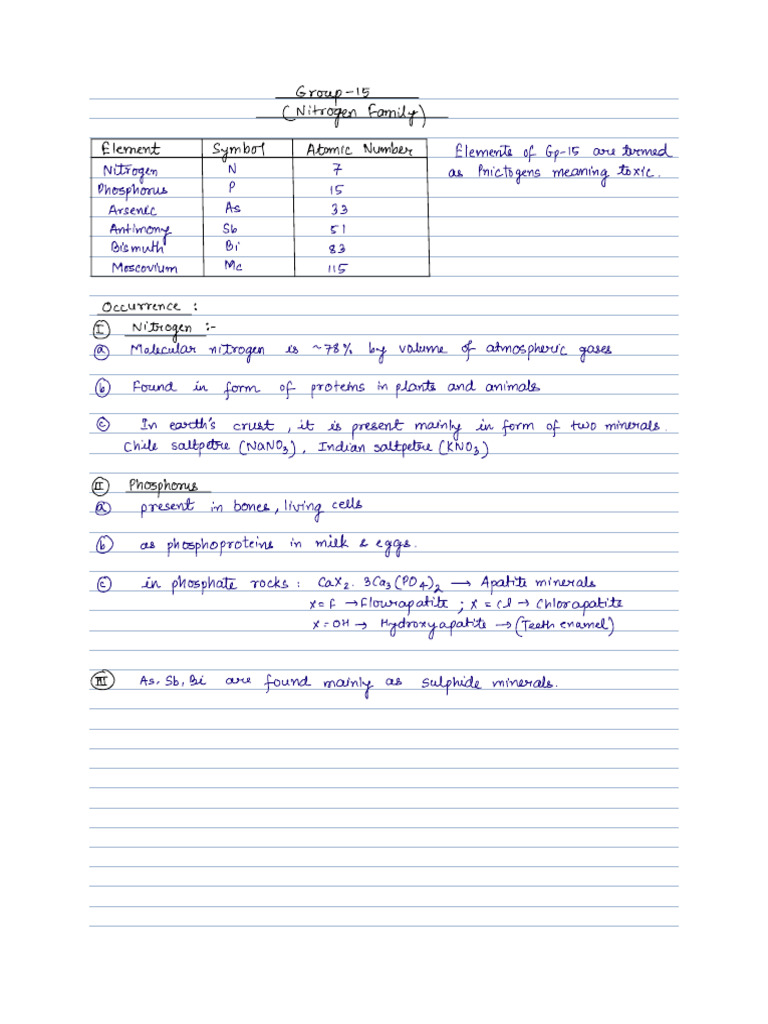 Group-15
(Nitrogen Family)
Element Symbol Atomic Number
Nitrogen N 7
Phosphorus P 15
Arsenic As 33
Antimony Sb 51
Bismuth Bi 83
Moscovium Mc 115
Elements of Gp-15 are termed
as Pnictogens meaning toxic.
Occurrence :
I Nitrogen :-
a Molecular nitrogen is ~78% by volume of atmospheric gases
b Found in form of proteins in plants and animals
c In earth's crust, it is present mainly in form of two minerals.
Chile saltpetre (NaNO3), Indian saltpetre (KNO3)
II Phosphorus
a present in bones, living cells
b as phosphoproteins in milk & eggs.
c in phosphate rocks : CaX2. 3Ca3(PO4)2 → Apatite minerals
X=F → Flourapatite ; X = Cl → Chlorapatite
X=OH → Hydroxyapatite → (Teeth enamel)
III As, Sb, Bi are found mainly as sulphide minerals.